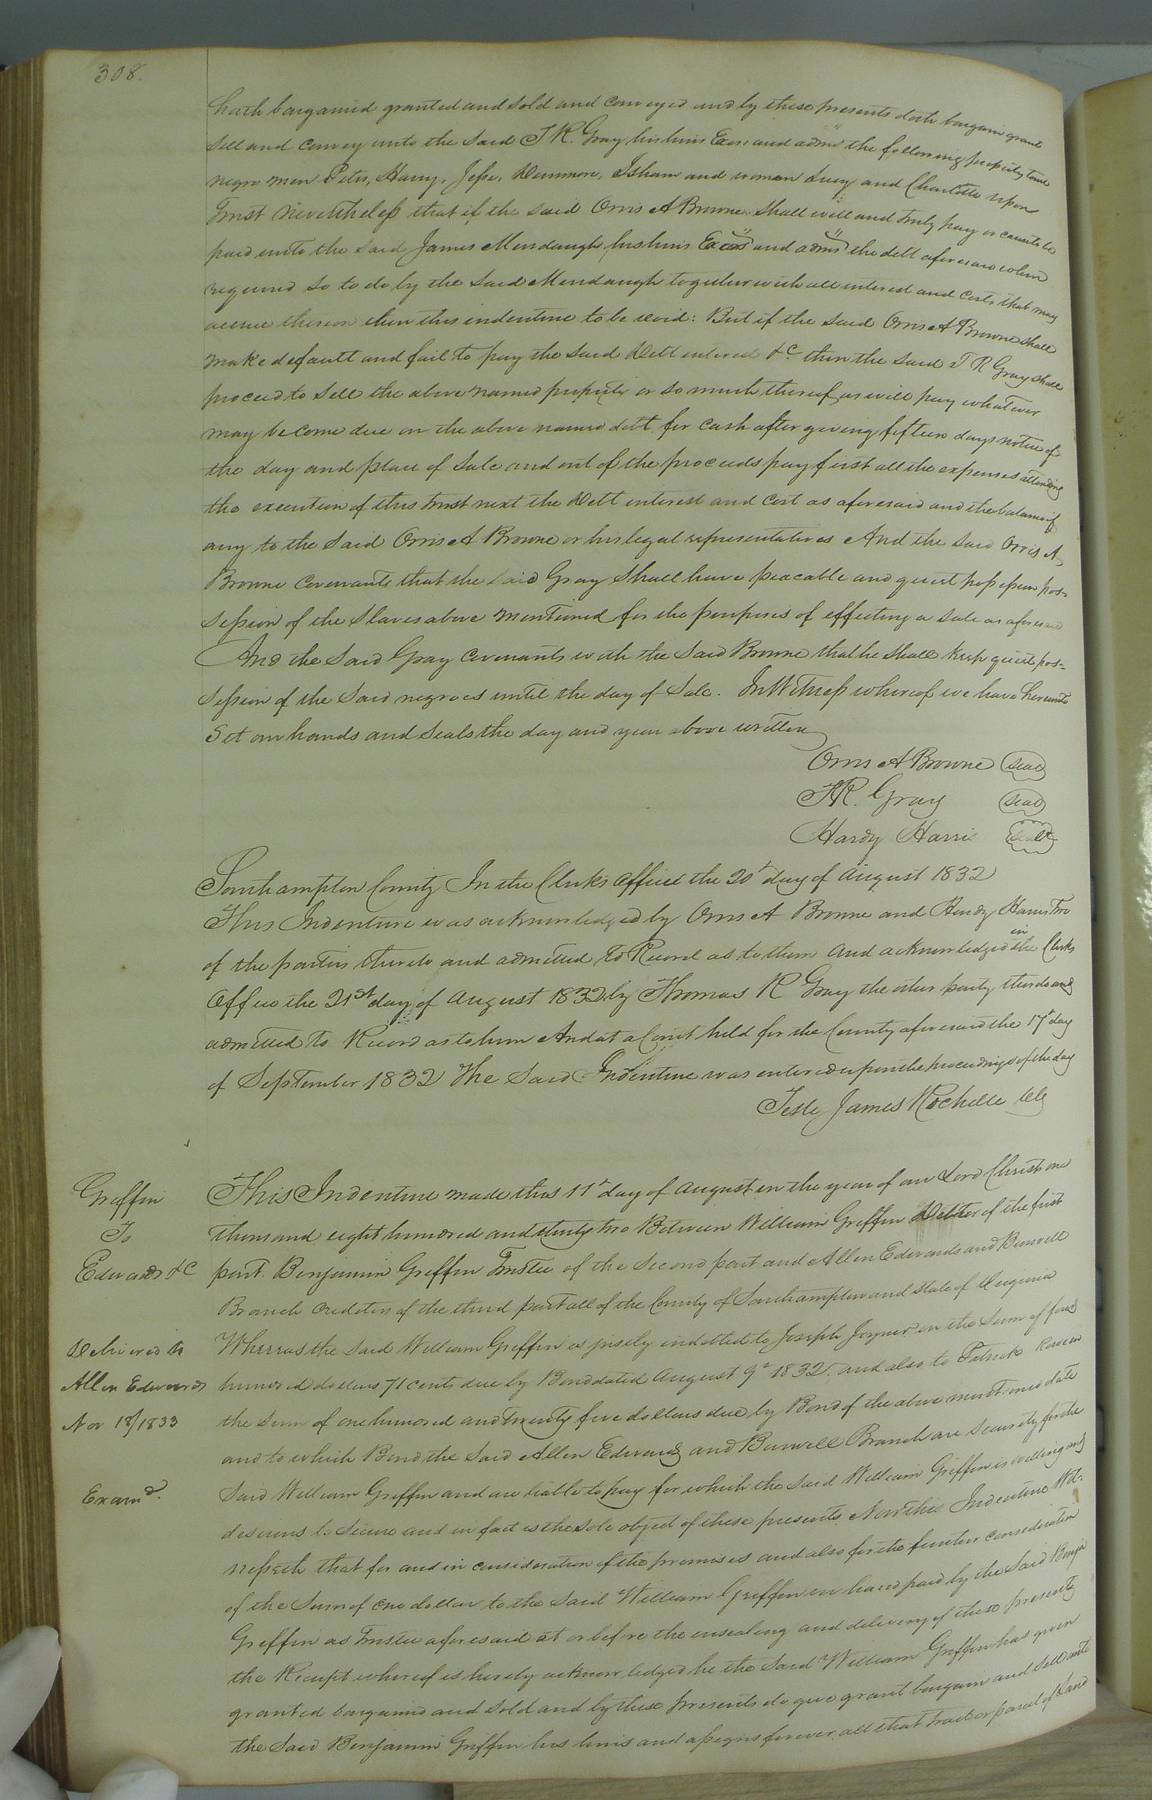 308.
hath bargained granted and sold and conveyed and by these presents doth bargain grant
sell and convey unto the said T R. Gray his heirs Exors and adms the following property to wit
negro men Peter, Harry, Jesse, Dunmore, Isham and woman Lucy and Charlotte upon
Trust nevertheless that if the said Orris A Browne shall well and truly pay or cause to be
paid unto the said James Mendaugh his heirs Exors and adms the debt aforesaid when
required so to do by the said Mendaugh together with all interest and costs that may
accrue thereon then this indenture to be void: But if the said Orris A Browne shall
make default and fail to pay the said Debt interest &c. then the said T R Gray shall
proceed to sell the above named property or so much thereof as will pay whatever
may become due on the above named debt for cash after giving fifteen days notice of
the day and place of sale and out of the proceeds pay first all the expenses attending
the execution of this trust next the Debt interest and cost as aforesaid and the balance if
any to the said Orris A Browne or his legal representatives And the said Orris A.
Browne covenants that the said Gray shall have peacable and quiet possession pos-
session of the slaves above mentioned for the purposes of effecting a sale as aforesaid
And the said Gray covenants with the said Browne that he shall keep quiet pos-
session of the said negroes until the day of sale. In Witness whereof we have hereunto
set our hands and seals the day and year above written
Orris A Browne seal
T R. Gray seal
Hardy Harris seal
Southampton County In the Clerks Office the 20t day of August 1832
This Indenture was acknowledged by Orris A Browne and Hardy Harris two
of the parties thereto and admitted to Record as to them And acknowledged in the Clerks
Office the 21st day of August 1832 by Thomas R Gray the other party thereto and
admitted to Record as to him And at a Court held for the County aforesaid the 17t day
of September 1832 The said Indenture was entered upon the proceedings of the day
Teste James Rochelle Clk
Griffin
To
Edwards &c
Delivered to
Allen Edwards
Nov 18/1833
Examd.
This Indenture made this 11t day of August in the year of our Lord Christ one
thousand eight hundred and thirty two Between William Griffin Debtor of the first
part. Benjamin Griffin Trustee of the Second part and Allen Edwards and Burwell
Branch creditors of the third part all of the County of Southampton and state of Virginia
Whereas the said William Griffin is justly indebted to Joseph Joyner in the sum of four
hundred dollars 71 cents due by Bond dated August 9th 1832. and also to Patrick
the sum of one hundred and twenty five dollars due by Bond of the above mentioned date
and to which Bond the said Allen Edwards and Burwell Branch are security for the
said William Griffin and are liable to pay for which the said William Griffin is willing and
desirous to secure and in fact is the sole object of these presents Now this Indenture Wit-
nesseth that for and in consideration of the premises and also for the further consideration
of the sum of one dollar to the said William Griffin in hand paid by the said Benja
Griffin as Trustee aforesaid at or before the ensealing and delivery of these presents
the Receipt whereof is hereby acknowledged he the said William Griffin has given
granted bargained and sold and by these presents do give grant bargain and sell unto
the said Benjamin Griffin his heirs and assigns forever all that tract or parcel of Land